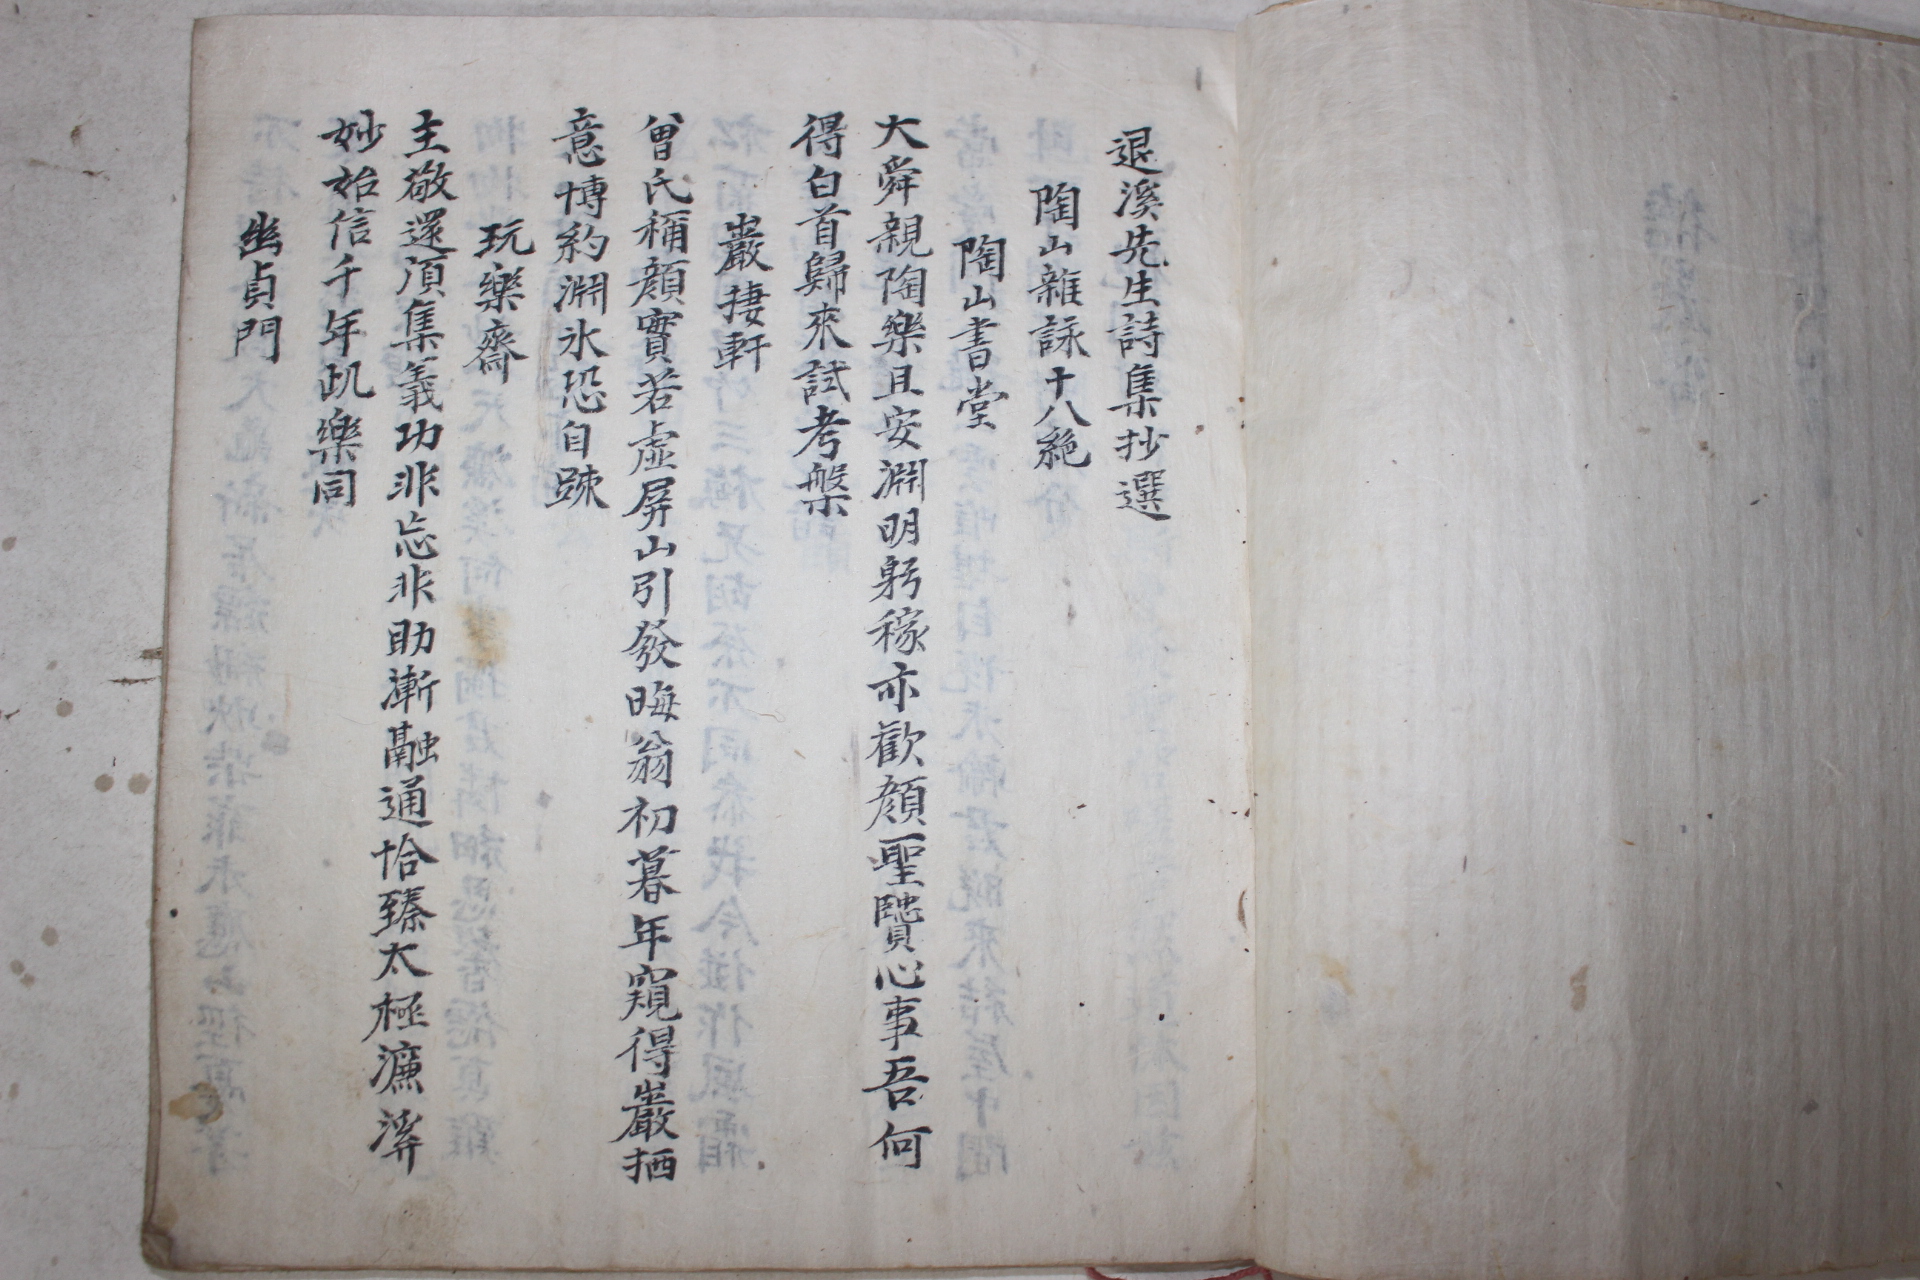 退溪先生詩集抄選
陶山雜詠十八絶
陶山書堂
大舜親陶樂且安淵明躬稼亦歡顔聖賢心事吾何
得白首歸來試考槃
巖捿軒
曾氏稱顔實若虛屏山引發晦翁初暮年窺得巖栖
意博約淵氷恐自踈
玩樂齋
主敬還須集義功非忘非助漸融通恰臻太極濂溪
妙始信千年此樂同
幽貞門